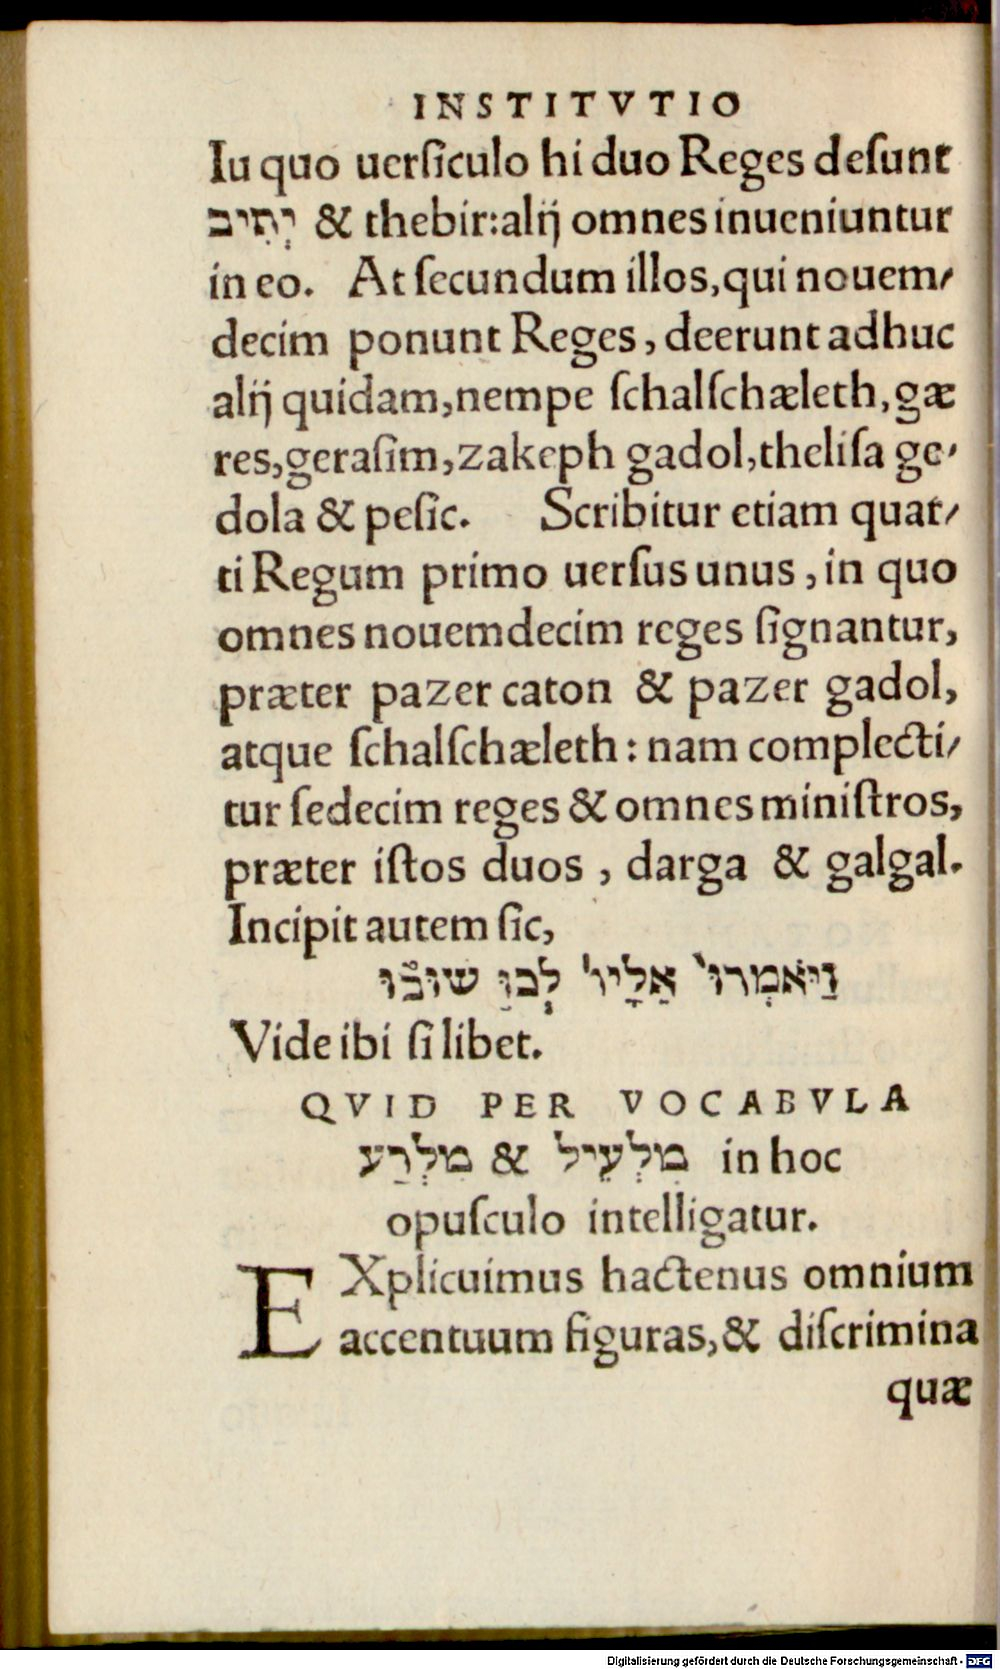 INSTITVTIO
Iu quo uerſiculo hi duo Reges deſunt
יְתִיב & thebir:alij omnes inueniuntur
in eo. At ſecundum illos,qui nouem⸗
decim ponunt Reges, deerunt adhuc
alij quidam,nempe ſchalſchæleth,gæ
res,geraſim,zakeph gadol,theliſa ge⸗
dola & peſic. Scribitur etiam quar⸗
ti Regum primo uerſus unus, in quo
omnes nouemdecim reges ſignantur,
præter pazer caton & pazer gadol,
atque ſchalſchæleth: nam complecti⸗
tur ſedecim reges & omnes miniſtros,
præter iſtos duos, darga & galgal.
Incipit autem ſic,
וַיֹּאמְרוּ֙ אֵלָיו֙ לְכוּ שׁוּבוּ֒
Vide ibi ſi libet.
QVID PER VOCABVLA
מִלְעֵיל & מִלְרַע in hoc
opuſculo intelligatur.
EXplicuimus hactenus omnium
accentuum figuras,& diſcrimina
quæ
Digitalisierung gefördert durch die Deutsche Forschungsgemeinschaft - DFG